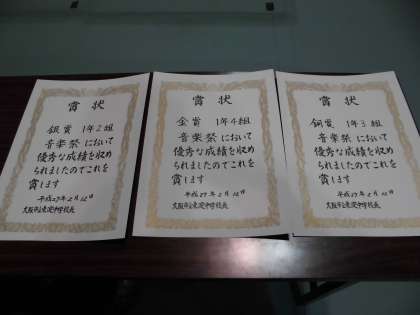 賞状
銀賞 1年2組
音楽祭において
優秀な成績を収め
られましたのでこれを
賞します
平成27年2月12日
賞状
金賞 1年4組
音楽祭において
優秀な成績を収め
られましたのでこれを
賞します
平成27年2月12日
賞状
銅賞 1年3組
音楽祭において
優秀な成績を収め
られましたのでこれを
賞します
平成27年2月12日